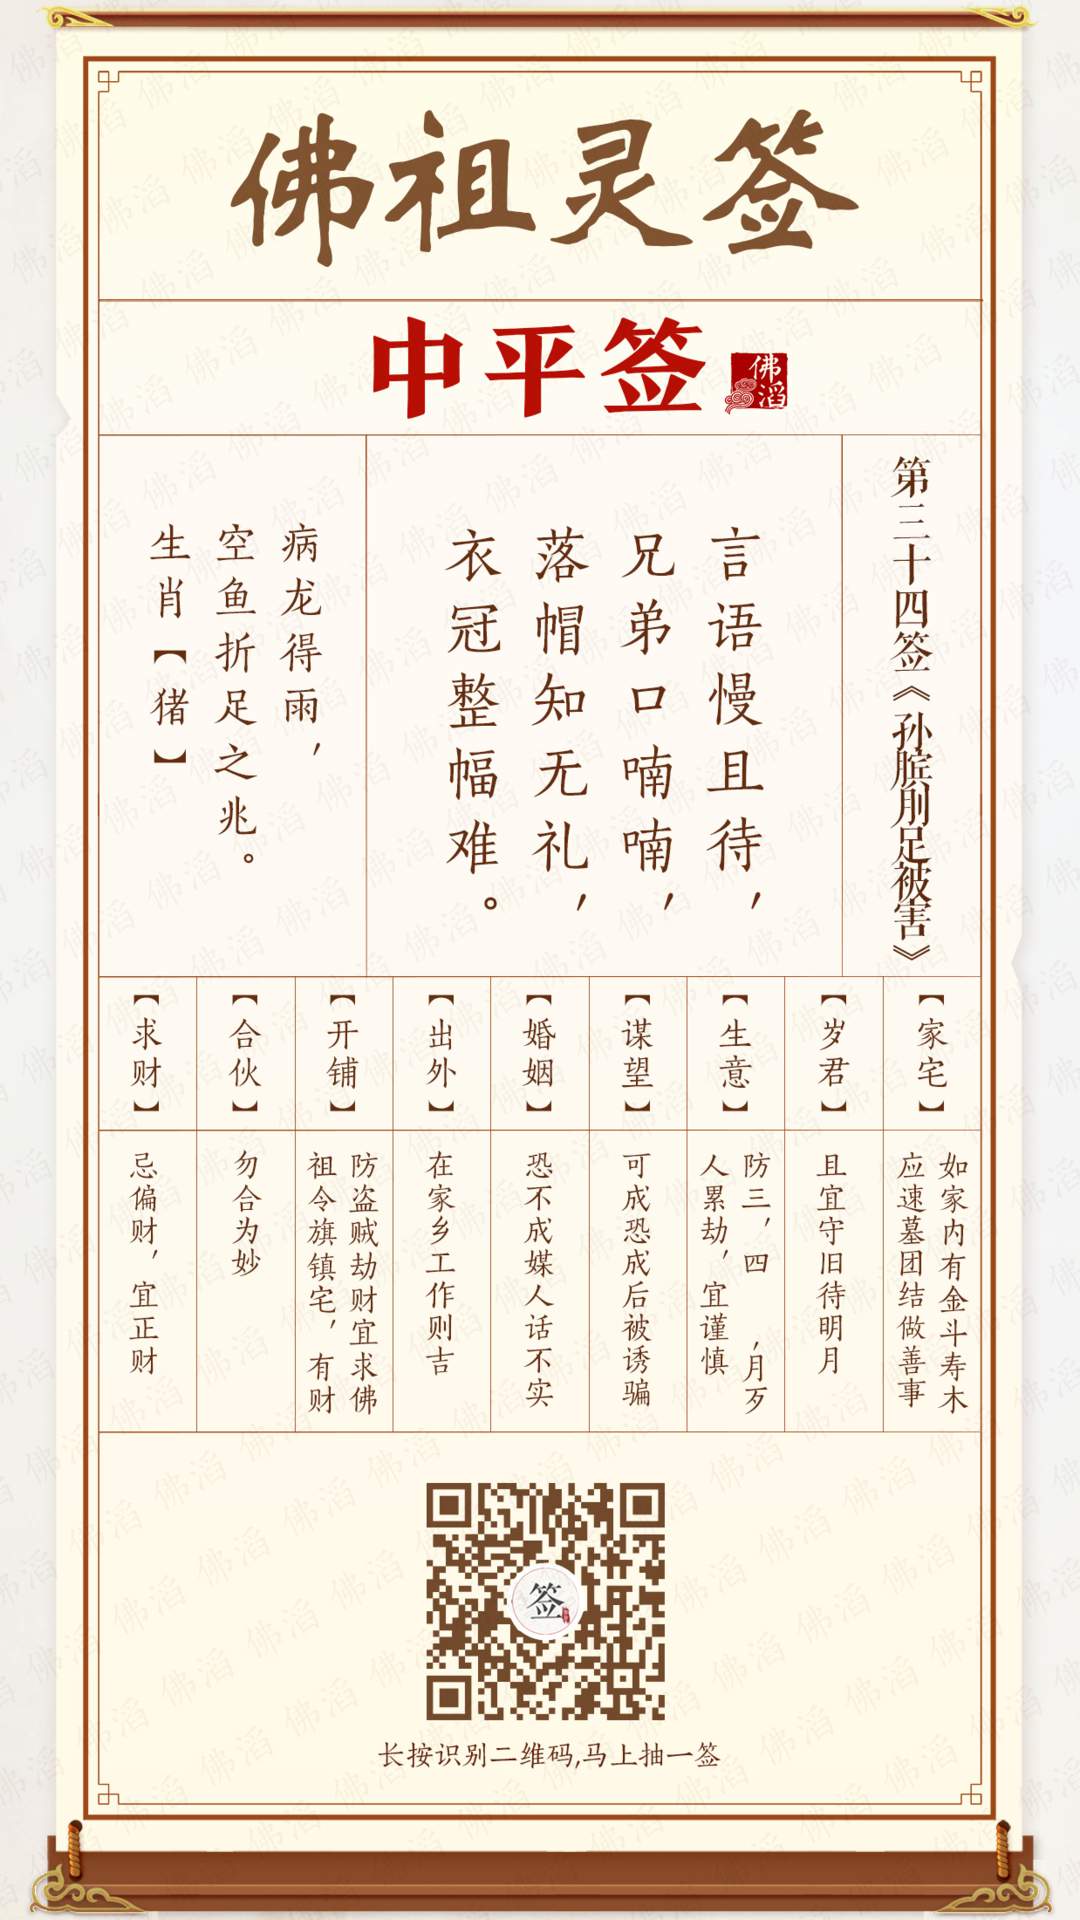 佛祖灵签
中平签
佛滔
第三十四签《孙膑刖足被害》
言语慢且待，
兄弟口喃喃，
落帽知无礼，
衣冠整幅难。
病龙得雨，
空鱼折足之兆。
生肖【猪】
【家宅】
如家内有金斗寿木
应速墓团结做善事
【岁君】
且宜守旧待明月
【生意】
防三，四，月歹
人累劫，宜谨慎
【谋望】
可成恐成后被诱骗
【婚姻】
恐不成媒人话不实
【出外】
在家乡工作则吉
【开铺】
防盗贼劫财宜求佛
祖令旗镇宅，有财
【合伙】
勿合为妙
【求财】
忌偏财，宜正财
签
长按识别二维码,马上抽一签